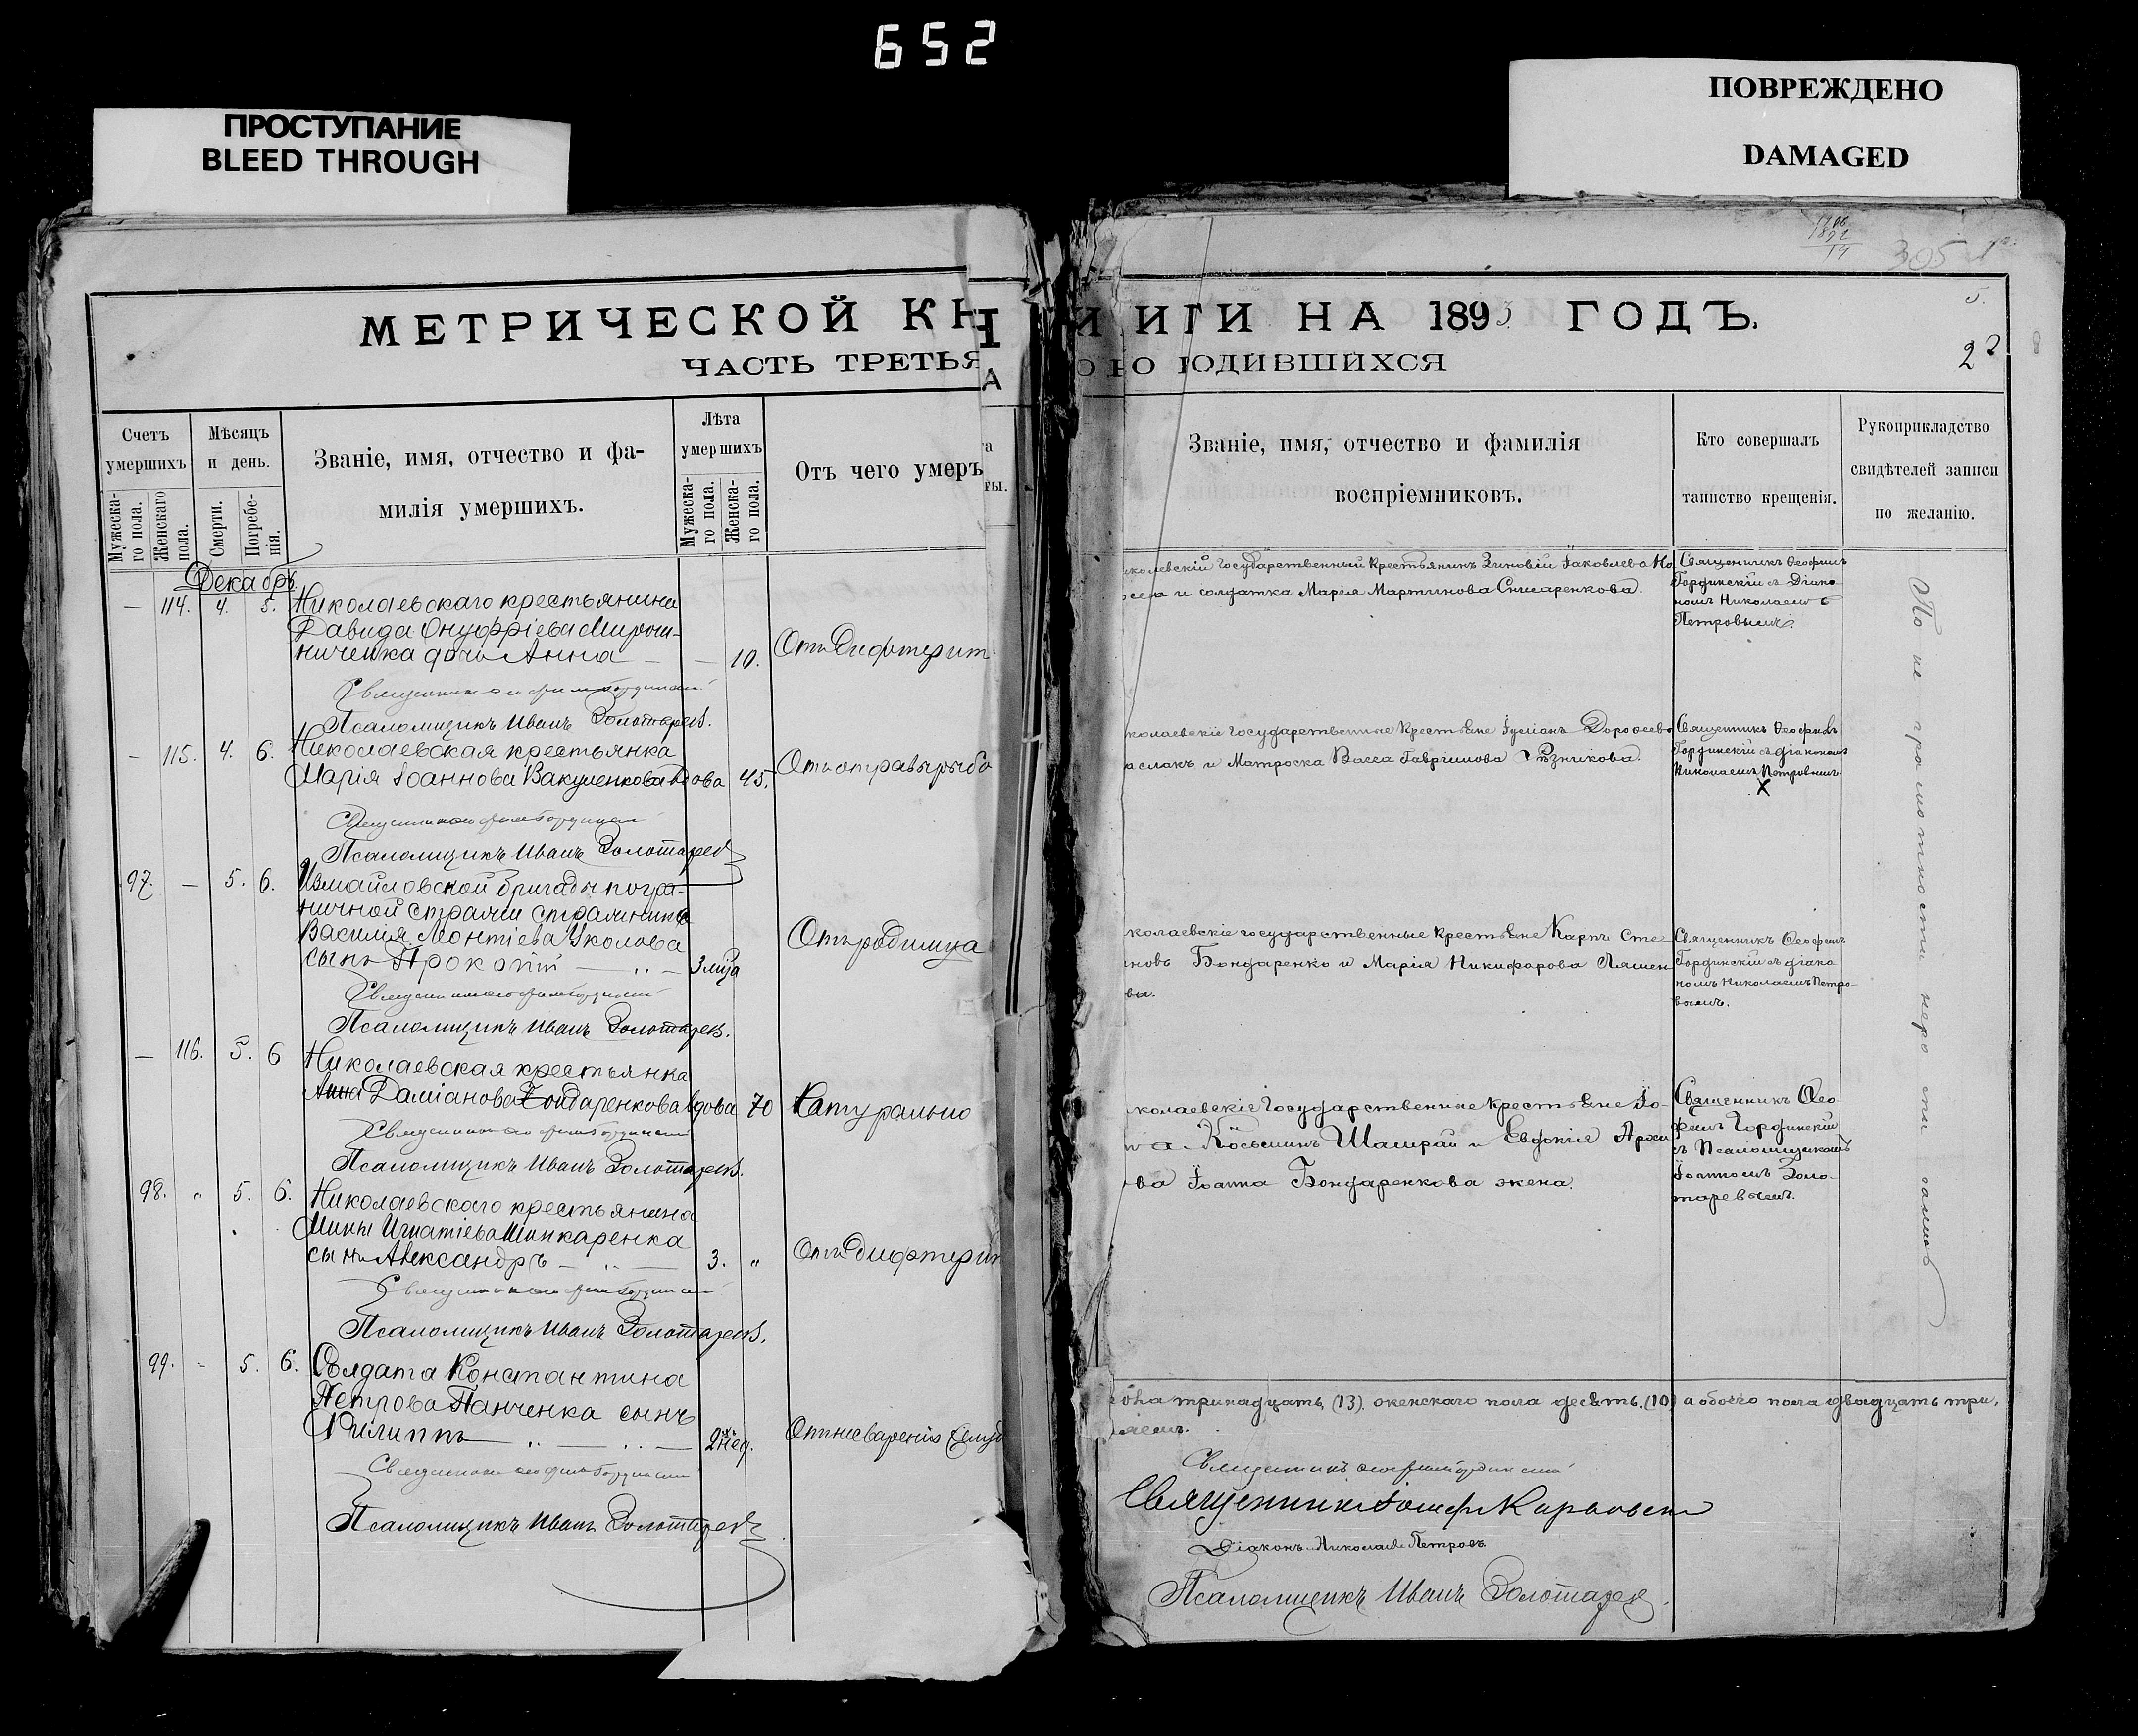 652
ПРОСТУПАНИЕ
BLEED THROUGH
ПОВРЕЖДЕНО
DAMAGED
305
5.
22
МЕТРИЧЕСКОЙ КН
ЧАСТЬ ТРЕТЬЯ
Счетъ умершихъ.
Мужеска-го пола.
Женскаго пола.
Мѣсяцъ и день.
Смерти.
Погребе-нія.
Званіе, имя, отчество и фа-
милія умершихъ.
Лѣта умершихъ
Мужеска-го пола.
Женска-го пола.
Отъ чего умеръ
Декабрь
— 114. 4. 5. Николаевскаго крестьянина
Давида Онуфріева Мирош-
ниченка дочь Анна — — 10. Отъ Дифтерит
Псаломщикъ Иванъ Золотаревъ.
— 115. 4. 6. Николаевская крестьянка
Марія Іоаннова Вакуленкова вдова 45. Отъ отравы рыбо
Псаломщикъ Иванъ Золотаревъ
97. — 5. 6. Измаиловской бригады погра-
ничной стражи стражника
Василія Монтіева Уколова
сынъ Прокопій — „ — 3 мца Отъ родимца
Псаломщикъ Иванъ Золотаревъ.
— 116. 5. 6 Николаевская крестьянка
Анна Даміанова Бондаренкова вдова 70 Натурально
Псаломщикъ Иванъ Золотаревъ.
98. „ 5. 6. Николаевскаго крестьянина
Мины Игнатіева Шинкаренка
сынъ Александръ — „ — 3. „ Отъ дифтерит
Псаломщикъ Иванъ Золотаревъ.
99. - 5. 6. Солдата Константина
Петрова Панченка сынъ
Филиппъ — „ — „ — 2 нед.
Псаломщикъ Иванъ Золотаревъ
ИГИ НА 1893 ГОДЪ.
О РОДИВШИХСЯ
Званіе, имя, отчество и фамилія
воспріемниковъ.
Кто совершалъ
таинство крещенія.
Рукоприкладство
свидѣтелей записи
по желанію.
колаевскій государственный крестьянинъ Зиновій Іаковлевъ Но
села и солдатка Марія Мартинова Снисаренкова.
Священникъ Ѳеофилъ
Гординскій съ Діако-
номъ Николаемъ
Петровымъ.
колаевскіе государственные крестьяне Іуліанъ Дороѳеевъ
аслакъ и Матроска Васса Гавріилова Рѣзникова.
Священникъ Ѳеофилъ
Гординскій съ діакономъ
Николаемъ Петровымъ.
X
колаевскіе государственные крестьяне Карпъ Сте
новъ Бондаренко и Марія Никифорова Ляшен
вы.
Священникъ Ѳеофилъ
Гординскій съ діако
номъ Николаемъ Петро-
вымъ.
колаевскіе Государственные крестьяне Іо-
Косьминъ Шамрай и Евдокія Архи
ова Іоанна Бондаренкова жена.
Священникъ Ѳео-
филъ Гординскій
съ Псаломщикомъ
Іоанномъ Золо-
таревымъ.
тринадцать (13). женскаго пола десять. (10) а обоего пола двадцать три.
Священникъ Іосифъ
Діаконъ Николай Петровъ
Псаломщикъ Иванъ Золотаревъ.